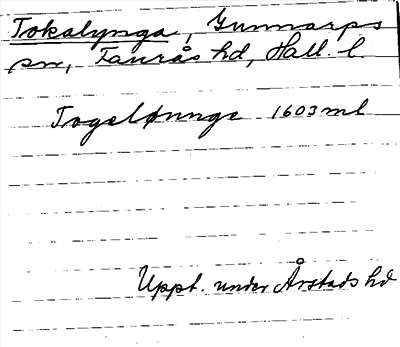 Tokalynga, Gunnarps
sn, Faurås hd, Hall. l.
Togelønnge 1603 ml
Uppt. under Årstads hd